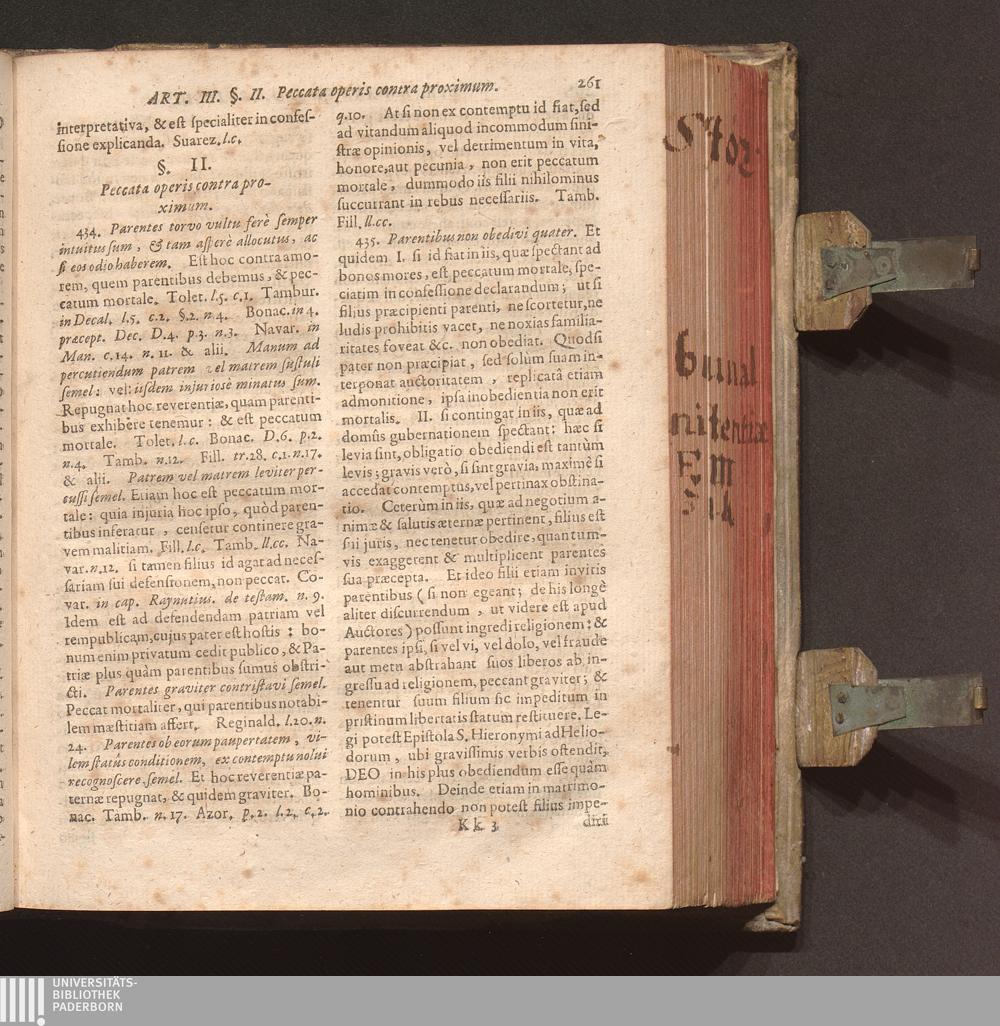 ART. III. §. II. Peccata operis contra proximum. 261
interpretativa, & est specialiter in confes-
sione explicanda. Suarez. l.c.
§. II.
Peccata operis contra pro-
ximum.
434. Parentes torvo vultu ferè semper
intuitus sum, & tam asperè allocutus, ac
si eos odio haberem. Est hoc contra amo-
rem, quem parentibus debemus, & pec-
catum mortale. Tolet. l.5. c.1. Tambur.
in Decal. l.5. c.2. §.2. n.4. Bonac. in 4.
præcept. Dec. D.4. p.3. n.3. Navar. in
Man. c.14. n.11. & alii. Manum ad
percutiendum patrem vel matrem sustuli
semel: vel: iisdem injuriosè minatus sum.
Repugnat hoc reverentiæ, quam parenti-
bus exhibere tenemur: & est peccatum
mortale. Tolet. l.c. Bonac. D.6. p.2.
n.4. Tamb. n.12. Fill. tr.28. c.1. n.17.
& alii. Patrem vel matrem leviter per-
cussi semel. Etiam hoc est peccatum mor-
tale: quia injuria hoc ipso, quòd paren-
tibus inferatur, censetur continere gra-
vem malitiam. Fill. l.c. Tamb. ll.cc. Na-
var. n.12. si tamen filius id agat ad neces-
sariam sui defensionem, non peccat. Co-
var. in cap. Raynutius. de testam. n. 9.
Idem est ad defendendam patriam vel
rempublicam, cujus pater est hostis: bo-
num enim privatum cedit publico, & Pa-
triæ plus quàm parentibus sumus obstri-
cti. Parentes graviter contristavi semel.
Peccat mortaliter, qui parentibus notabi-
lem mæstitiam affert. Reginald. l.20. n.
24. Parentes ob eorum paupertatem, vi-
lem statûs conditionem, ex contemptu nolui
recognoscere, semel. Et hoc reverentiæ pa-
ternæ repugnat, & quidem graviter. Bo-
nac. Tamb. n. 17. Azor. p.2. l.2. c.2.
q.10. At si non ex contemptu id fiat, sed
ad vitandum aliquod incommodum sini-
stræ opinionis, vel detrimentum in vita,
honore, aut pecunia, non erit peccatum
mortale, dummodo iis filii nihilominus
succurrant in rebus necessariis. Tamb.
Fill. ll.cc.
435. Parentibus non obedivi quater. Et
quidem I. si id fiat in iis, quæ spectant ad
bonos mores, est peccatum mortale, spe-
ciatim in confessione declarandum; ut si
filius præcipienti parenti, ne scortetur, ne
ludis prohibitis vacet, ne noxias familia-
ritates foveat &c. non obediat. Quodsi
pater non præcipiat, sed solùm suam in-
terponat auctoritatem, replicatâ etiam
admonitione, ipsa inobedientia non erit
mortalis. II. si contingat in iis, quæ ad
domûs gubernationem spectant: hæc si
levia sint, obligatio obediendi est tantùm
levis; gravis verò, si sint gravia, maximè si
accedat contemptus, vel pertinax obstina-
tio. Ceterùm in iis, quæ ad negotium a-
nimæ & salutis æternæ pertinent, filius est
sui juris, nec tenetur obedire, quantum-
vis exaggerent & multiplicent parentes
sua præcepta. Et ideo filii etiam invitis
parentibus (si non egeant; de his longè
aliter discurrendum, ut videre est apud
Auctores) possunt ingredi religionem: &
parentes ipsi, si vel vi, vel dolo, vel fraude
aut metu abstrahant suos liberos ab in-
gressu ad religionem, peccant graviter; &
tenentur suum filium sic impeditum in
pristinum libertatis statum restituere. Le-
gi potest Epistola S. Hieronymi ad Helio-
dorum, ubi gravissimis verbis ostendit,
DEO in his plus obediendum esse quàm
hominibus. Deinde etiam in matrimo-
nio contrahendo non potest filius impe-
Kk 3 diri
Stoz.
bunal
nitentiæ
UNIVERSITÄTS-
BIBLIOTHEK
PADERBORN